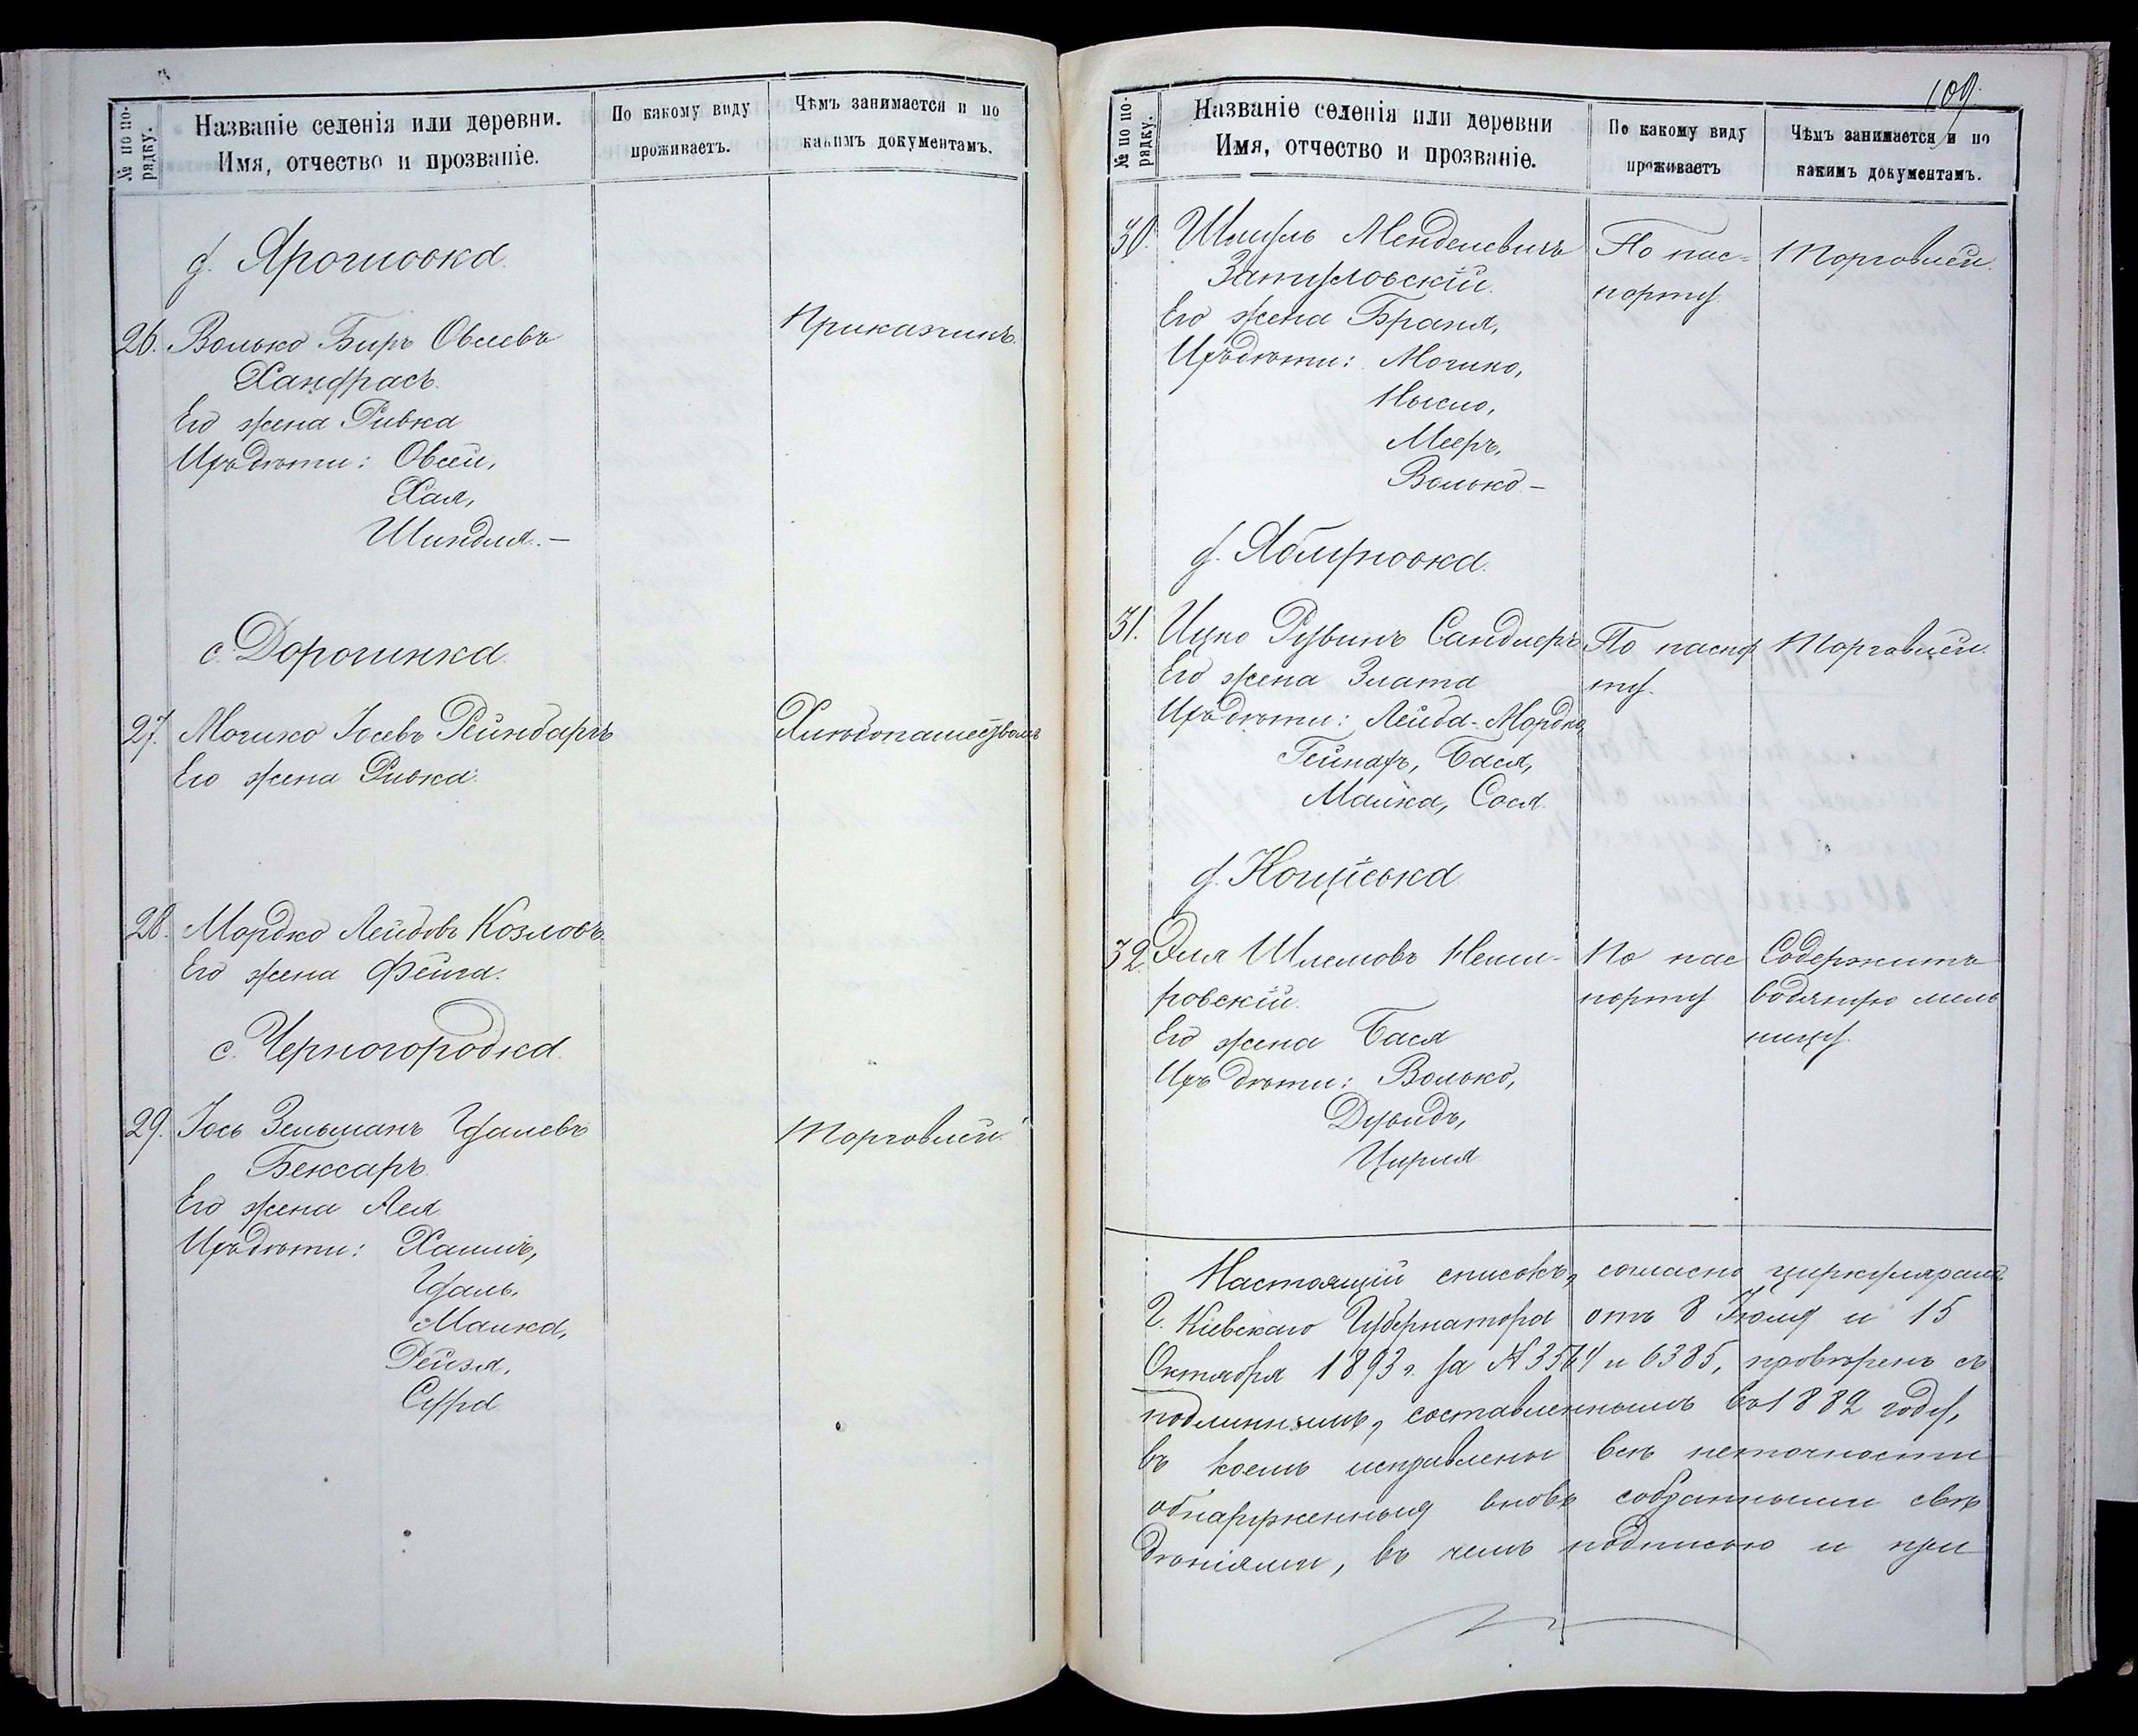 № по по-
рядку.
Названіе селенія или деревни.
Имя, отчество и прозваніе.
По какому виду
проживаетъ.
Чѣмъ занимается и по
какимъ документамъ.
д. Ярошовка.
26. Волько Биръ Овсевъ
Хандрасъ.
Приказчикъ.
Его жена Ривка
Ихъ дѣти: Овсей,
Хая,
Шиндля. —
с. Дорогинка.
27. Мошко Іосевъ Рейнбаръ
Хлѣбопашествомъ
Его жена Ривка.
28. Мордко Лейбовъ Козловъ.
Его жена Фейга.
с. Черногородка.
29. Іось Зельманъ Удалевъ
Бексаръ.
Торговлей.
Его жена Лея
Ихъ дѣти: Хаимъ,
Удаль,
Малка,
Рейзя,
Сура.
109.
№ по по-
рядку.
Названіе селенія или деревни
Имя, отчество и прозваніе.
По какому виду
проживаетъ
Чѣмъ занимается и по
какимъ документамъ.
30. Шмуль Менделевичъ
По пас-
Торговлей.
портy.
Его жена Браня,
Ихъ дѣти: Мошко,
Мееръ,
Волько —
д. Яблуновка.
31. Ицко Рувинъ Сандлеръ
Торговлей.
Его жена Злата
ту.
Ихъ дѣти: Лейба-Мордко,
Бася,
Малка, Сося.
32. Эля Шлемовъ Неми-
По пас
Содержитъ
ровскій.
порту
водяную мель
Его жена Бася
ницу.
Ихъ дѣти: Волько,
Дувидъ,
Цирля
Настоящій списокъ, согласно циркулярамъ
Г. Кіевскаго Губернатора отъ 8 Іюля и 15
Октября 1893 г. за № 3564 и 6385, провѣренъ съ
подлиннымъ, составленнымъ въ 1882 году,
въ коемъ исправлены всѣ неточности
обнаруженныя вновь собранными свѣ
дѣніями, въ чемъ подписью и при